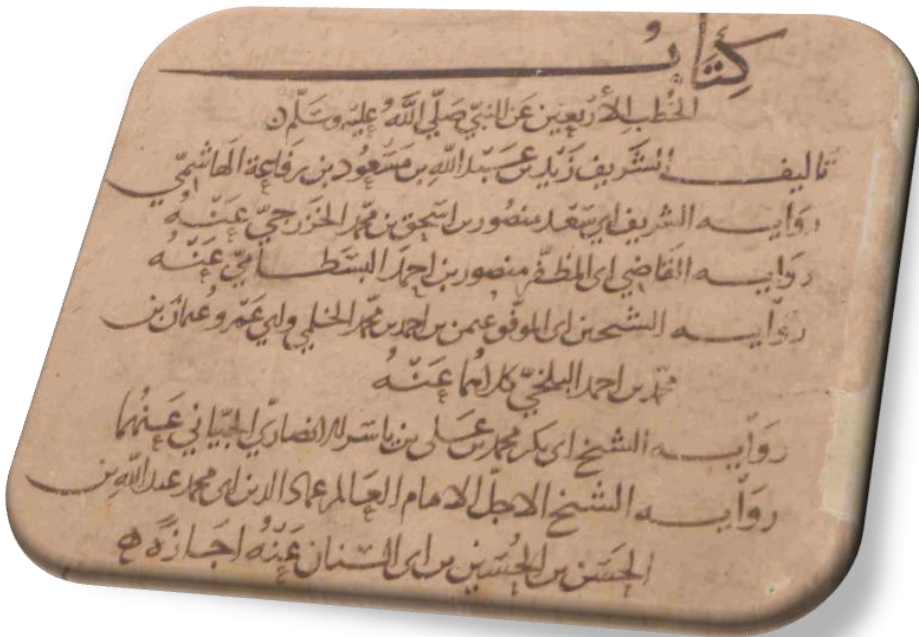 كتاب
الخطب الأربعين عن النبي صلي الله عليه وسلم
تاليف الشريف زيد بن عبد الله بن مسعود بن رفاعة الهاشمي
رواية الشريف ابي سعد منصور بن اسحق بن محمد الخزرجي عنه
رواية القاضي ابي المظفر منصور بن احمد البسطامي عنه
رواية الشيخين ابي الموفق عمر بن احمد بن محمد الخلمي وابي عمرو عثمان بن
محمد بن احمد البلخي كلاهما عنه
رواية الشيخ ابي بكر محمد بن علي بن ياسر الانصاري الجياني عنهما
رواية الشيخ الاجل الامام العالم عماد الدين ابي محمد عبد الله بن
الحسن بن الحسين بن ابي السنان عنه اجازة